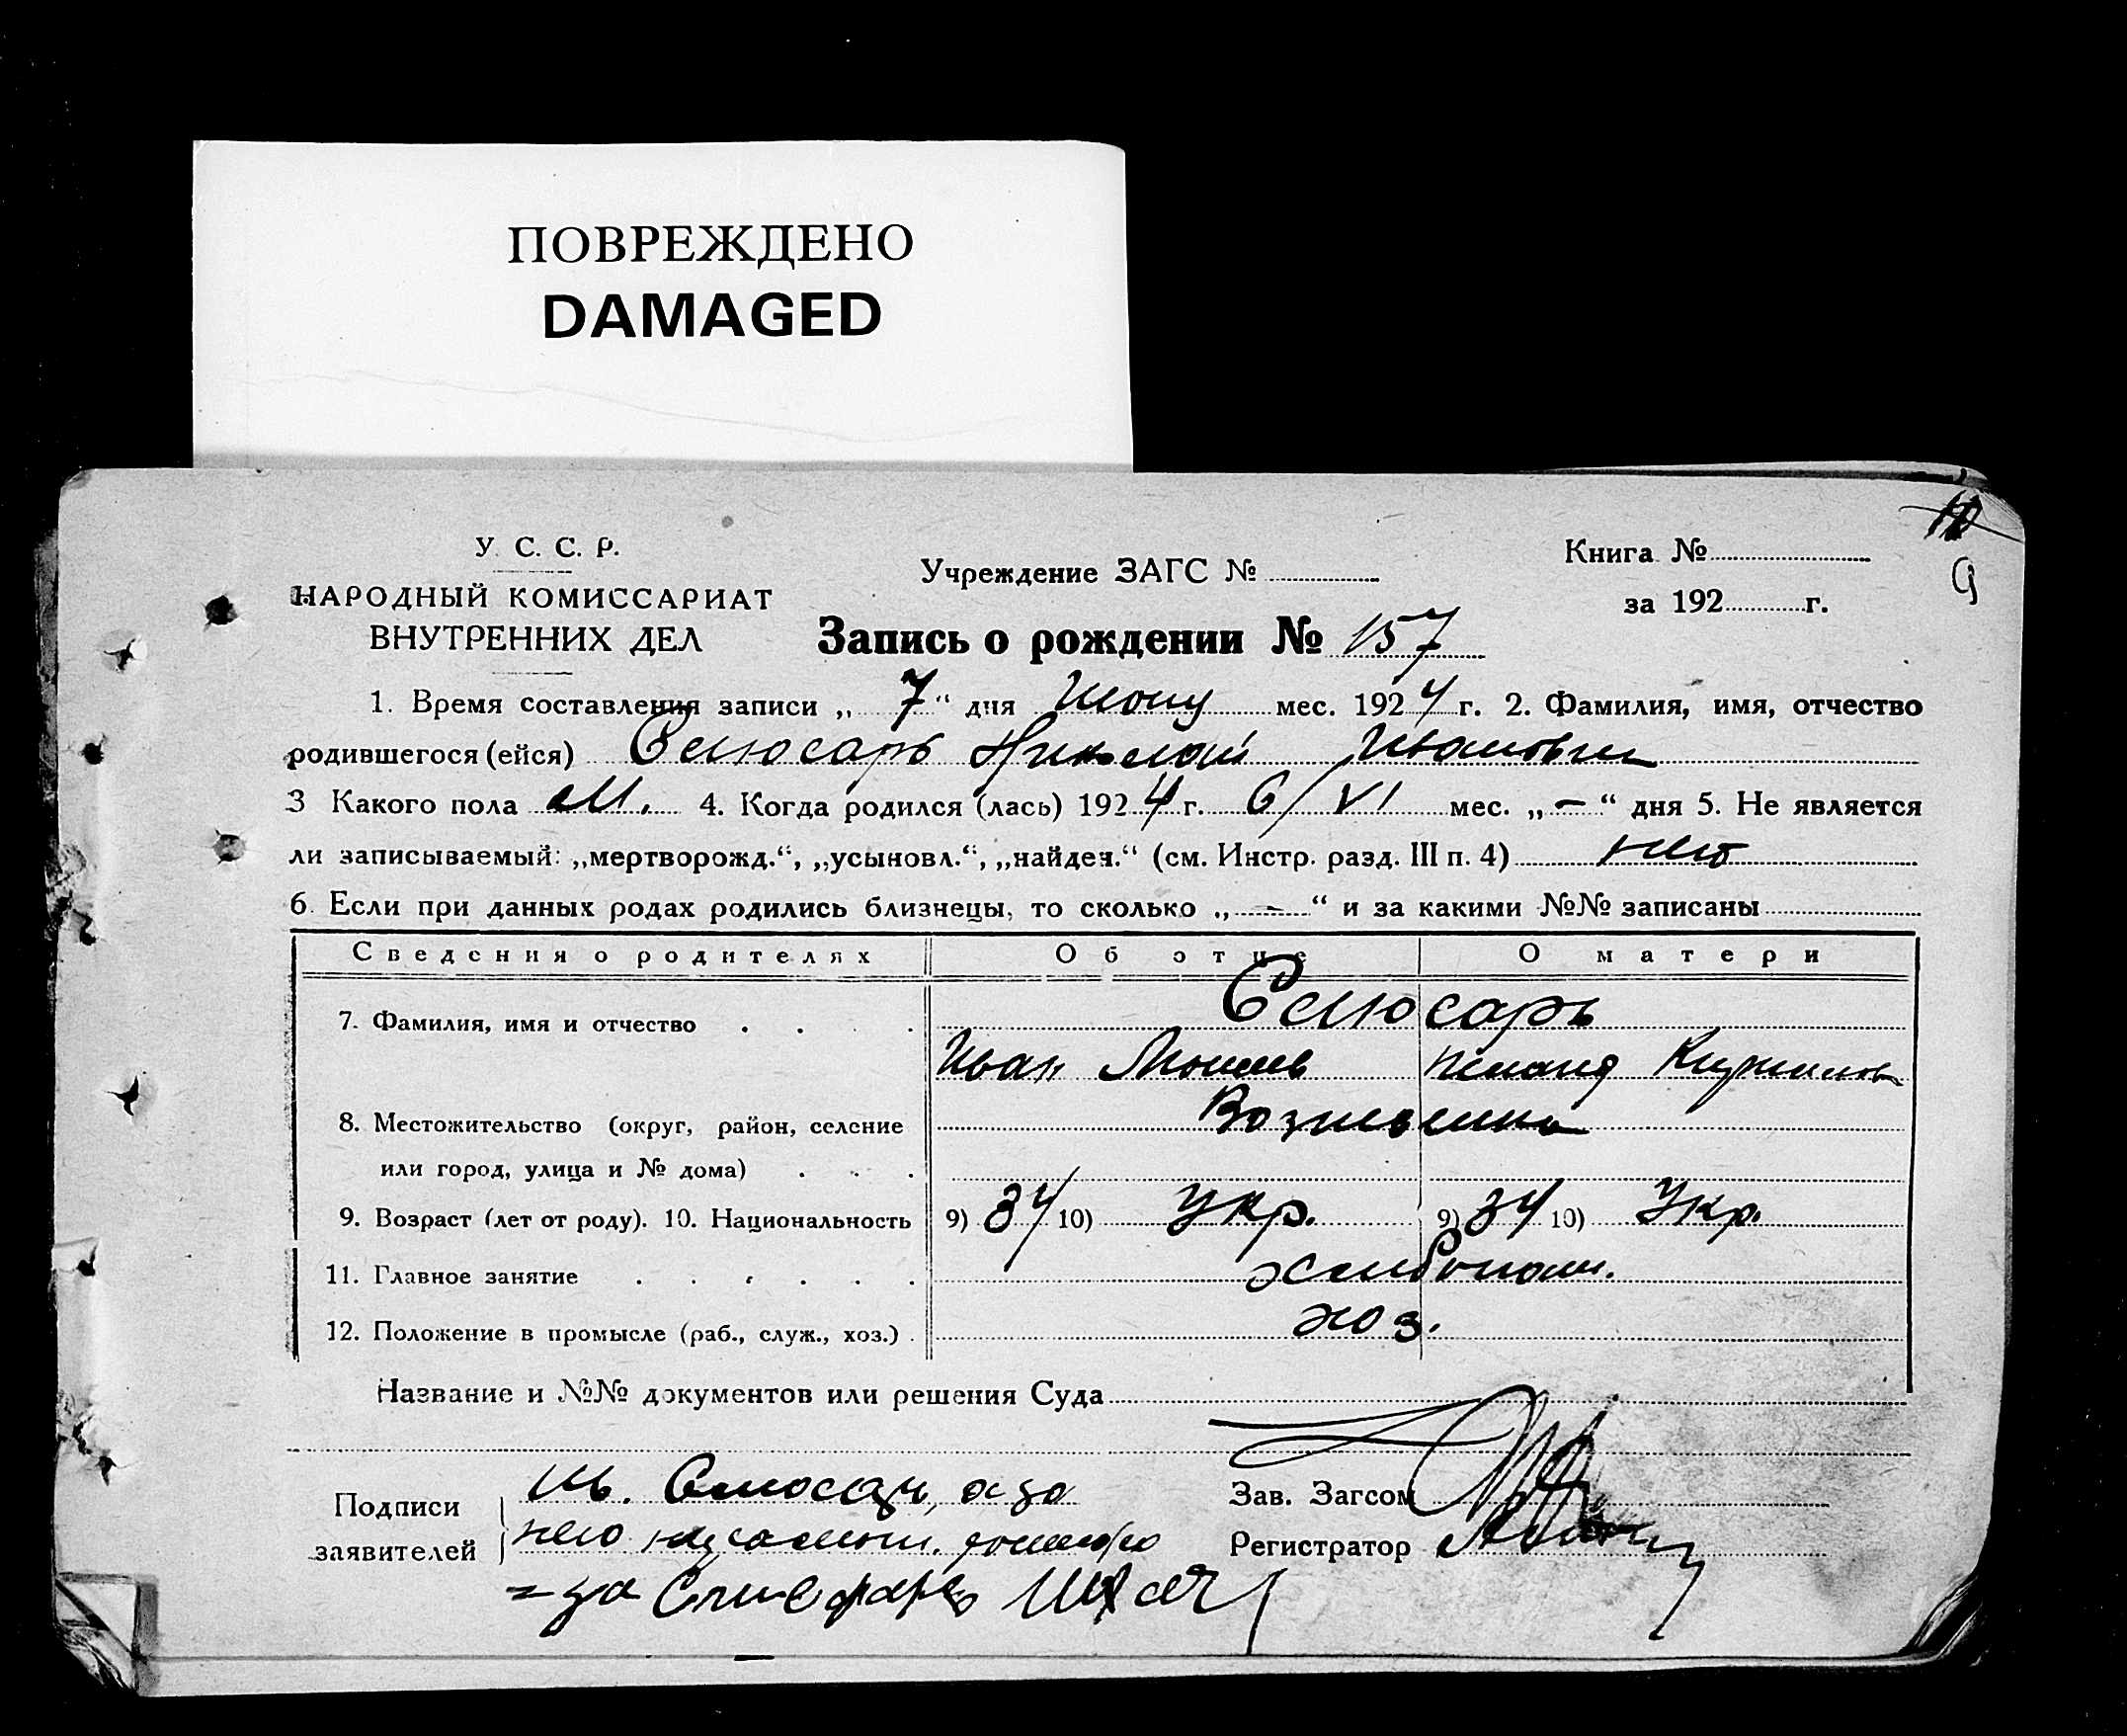 ПОВРЕЖДЕНО
DAMAGED
У. С. С. Р.
НАРОДНЫЙ КОМИССАРИАТ
ВНУТРЕННИХ ДЕЛ
Учреждение ЗАГС №
Книга №
за 192 г.
9
Запись о рождении № 157
1. Время составления записи „ 7 “ дня мес. 1924 г. 2. Фамилия, имя, отчество
родившегося (ейся) Слюсарь Николай Иванович
3 Какого пола М. 4. Когда родился (лась) 1924 г. 6/VI мес. „ – “ дня 5. Не является
ли записываемый: „мертворожд.“, „усыновл.“, „найден.“ (см. Инстр. разд. III п. 4) нет
6. Если при данных родах родились близнецы, то сколько „ – “ и за какими №№ записаны
Сведения о родителях Об отце О матери
7. Фамилия, имя и отчество Слюсарь
Иван
8. Местожительство (округ, район, селение
или город, улица и № дома)
9. Возраст (лет от роду). 10. Национальность 9) 34 10) Укр. 9) 34 10) Укр.
11. Главное занятие
12. Положение в промысле (раб., служ., хоз.) хоз.
Название и №№ документов или решения Суда
Подписи Ив. Слюсарь, а за Зав. Загсом
заявителей него Регистратор